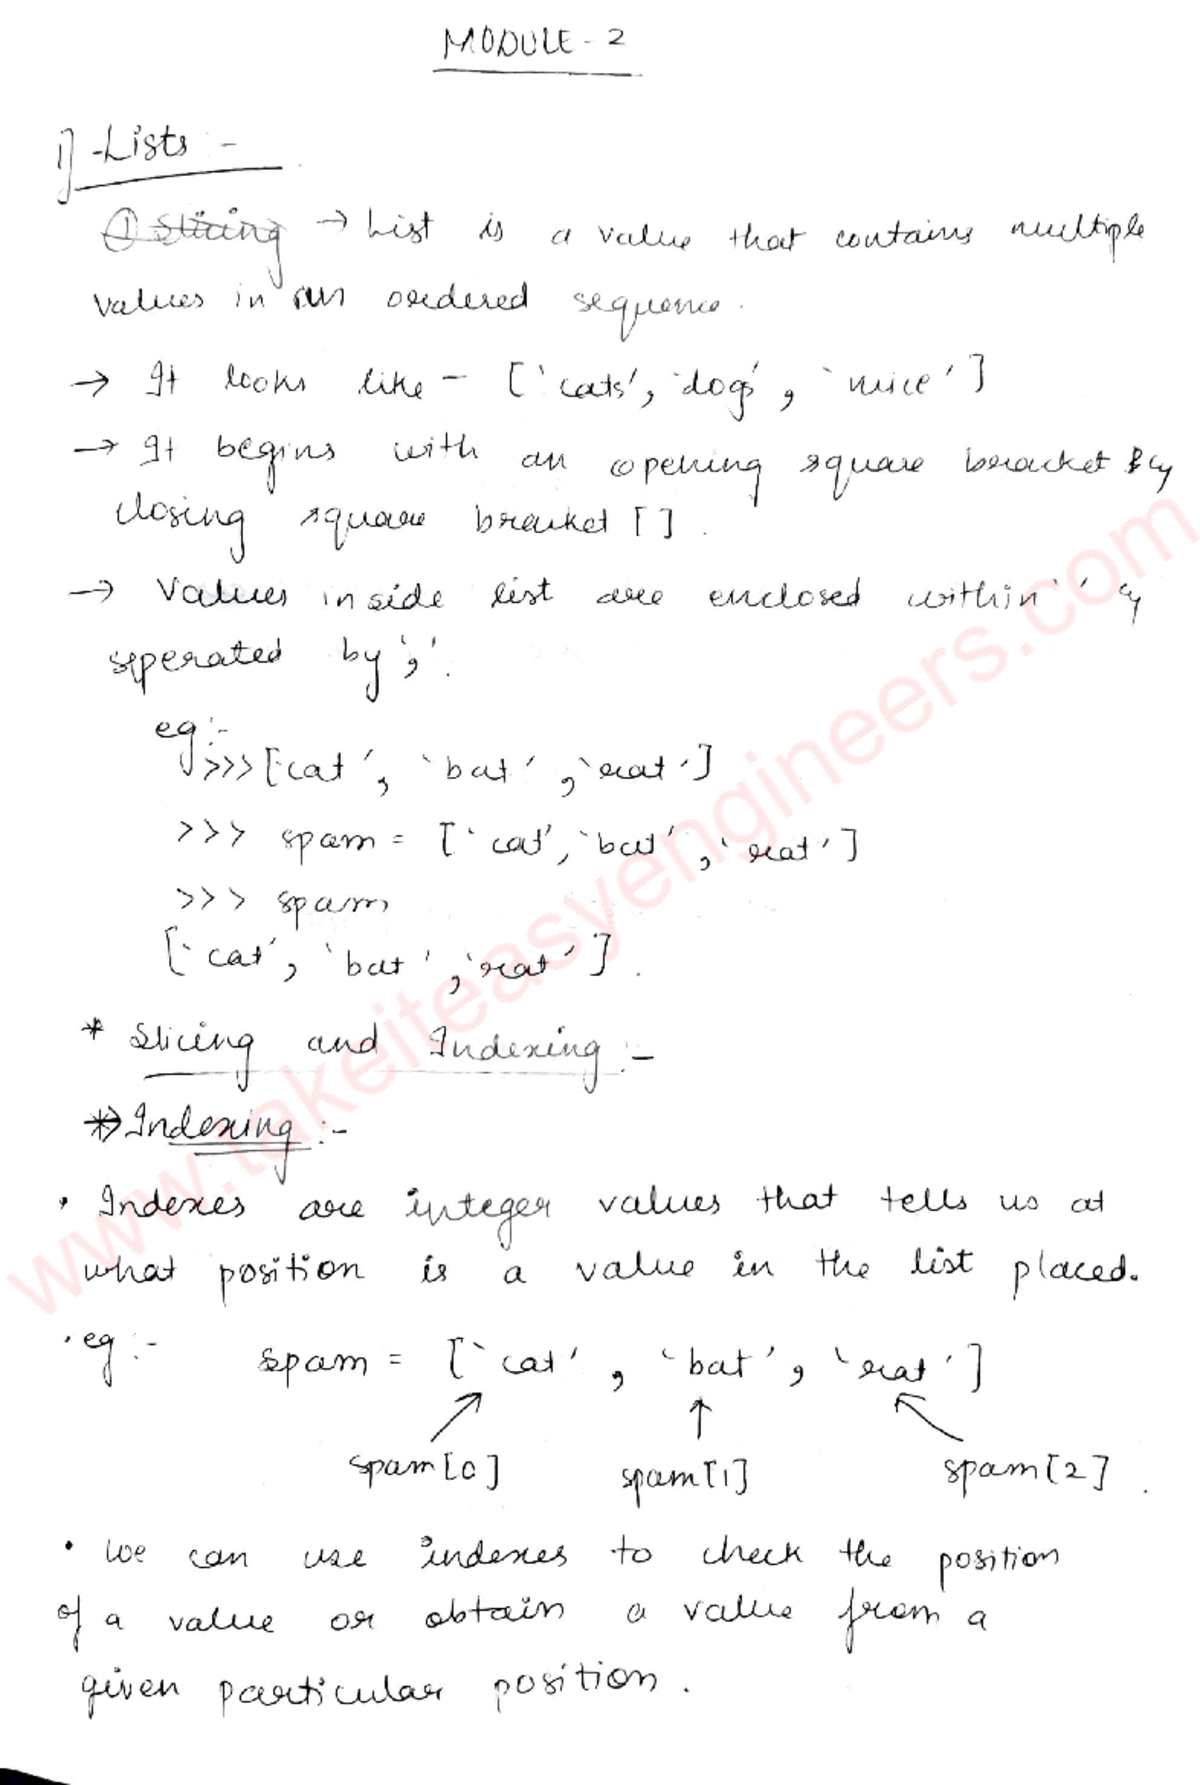 MODULE - 2
1] Lists :-
① Slicing → List is a value that contains multiple
values in an ordered sequence.
→ It looks like - ['cats', 'dog', 'mice']
→ It begins with an opening square bracket &
closing square bracket [ ].
→ Values inside list are enclosed within ' '
seperated by ','.
eg:-
>>> ['cat', 'bat', 'rat']
>>> spam = ['cat', 'bat', 'rat']
>>> spam
['cat', 'bat', 'rat'].
* Slicing and Indexing :-
*> Indexing :-
• Indexes are integer values that tells us at
what position is a value in the list placed.
• eg :- spam = ['cat', 'bat', 'rat']
spam[0] spam[1] spam[2].
• We can use indexes to check the position
of a value or obtain a value from a
given particular position.
www.takeiteasyengineers.com